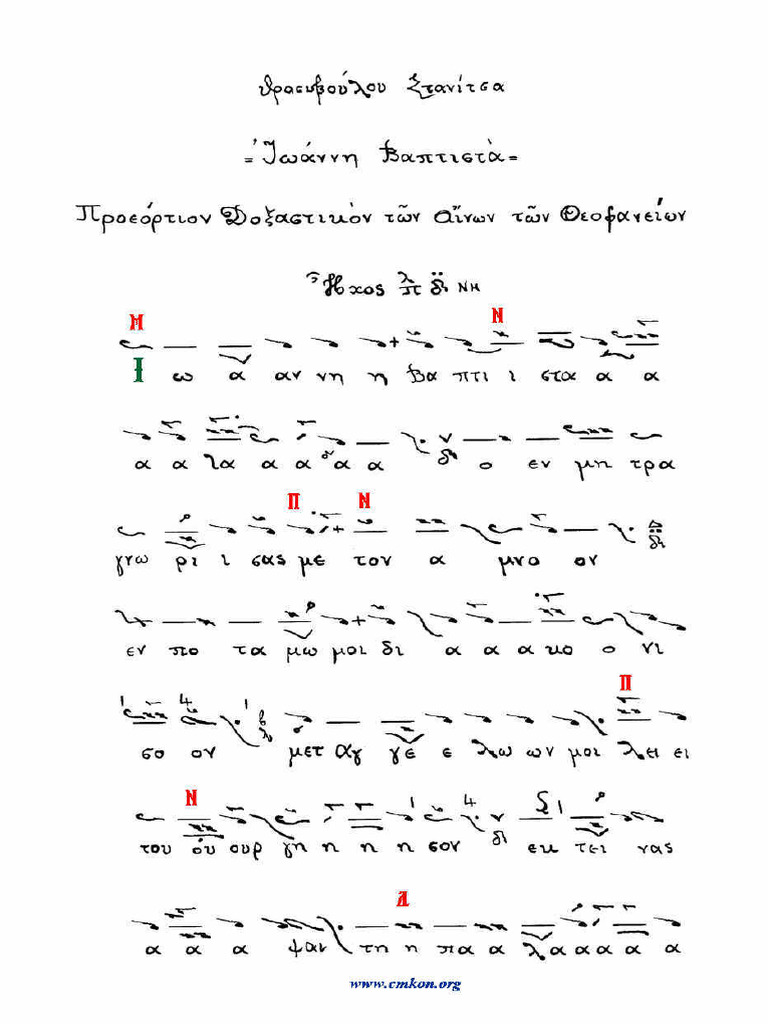 Θρασυβούλου Στανίτσα
=Ἰωάννη Βαπτιστὰ=
Προεόρτιον Δοξαστικὸν τῶν Αἴνων τῶν Θεοφανείων
Ἦχος λ π δι νη
Μ Ν
Ι ω α αν νη η Βα πτι ι στα α α
α α λα α α α α δι ο εν μη τρα
Π Ν
γνω ρι ι σας με τον α μνο ον δι
εν πο τα μω μοι δι α α α κο ο νι
Π
σο ον μετ αγ γε ε λω ων μοι λει ει
Ν
του ου ουρ γη η η η σον δι εκ τει νας
Δ
α α α ψαι τη η πα α λα α α α α
www.cmkon.org